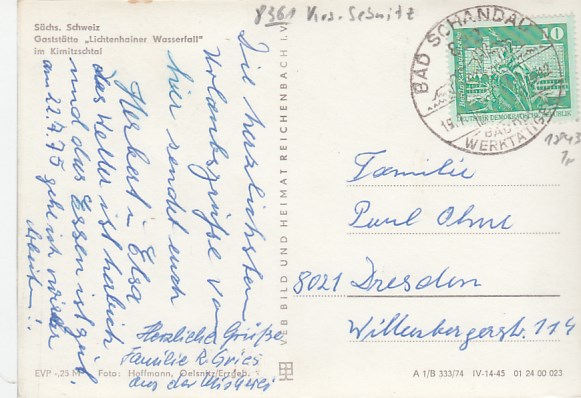 Sächs. Schweiz
Gaststätte „Lichtenhainer Wasserfall"
im Kirnitzschtal
8361 Krs. Sebnitz
Die herzlichsten
Urlaubsgrüße von
hier sendet euch
Herbert u. Elsa
das Wetter ist herlich
und das Essen ist gut.
am 22.7.75 gehe ich wieder
Arbeiten!.
Herzliche Grüße
Familie R. Gries
aus der
EVP -,25 M Foto: Hoffmann, Oelsnitz/Erzgeb.
VEB BILD UND HEIMAT REICHENBACH I.V.
BAD SCHANDAU
WERKTÄTIGEN
10
1p
Familie
Paul Ohne
8021 Dresden
Wittenbergerstr. 114
A 1/B 333/74 IV-14-45 01 24 00 023